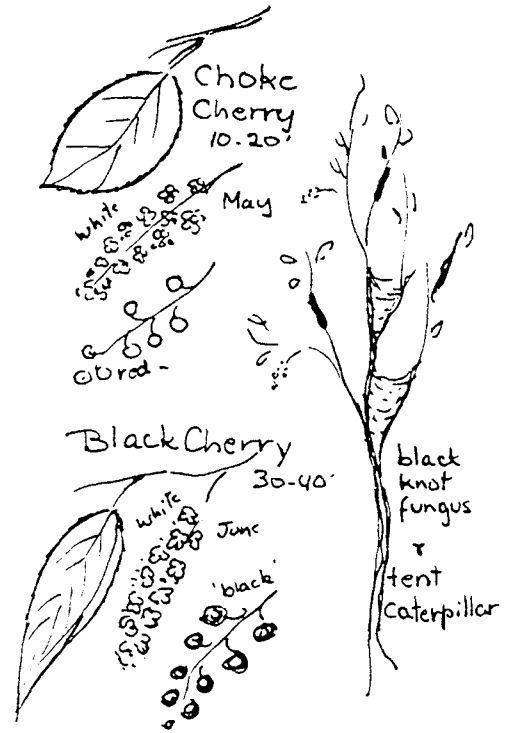 Choke
Cherry
10-20'
white
May
red-
Black Cherry
30-40'
white
June
'black'
black
knot
fungus
&
tent
caterpillar